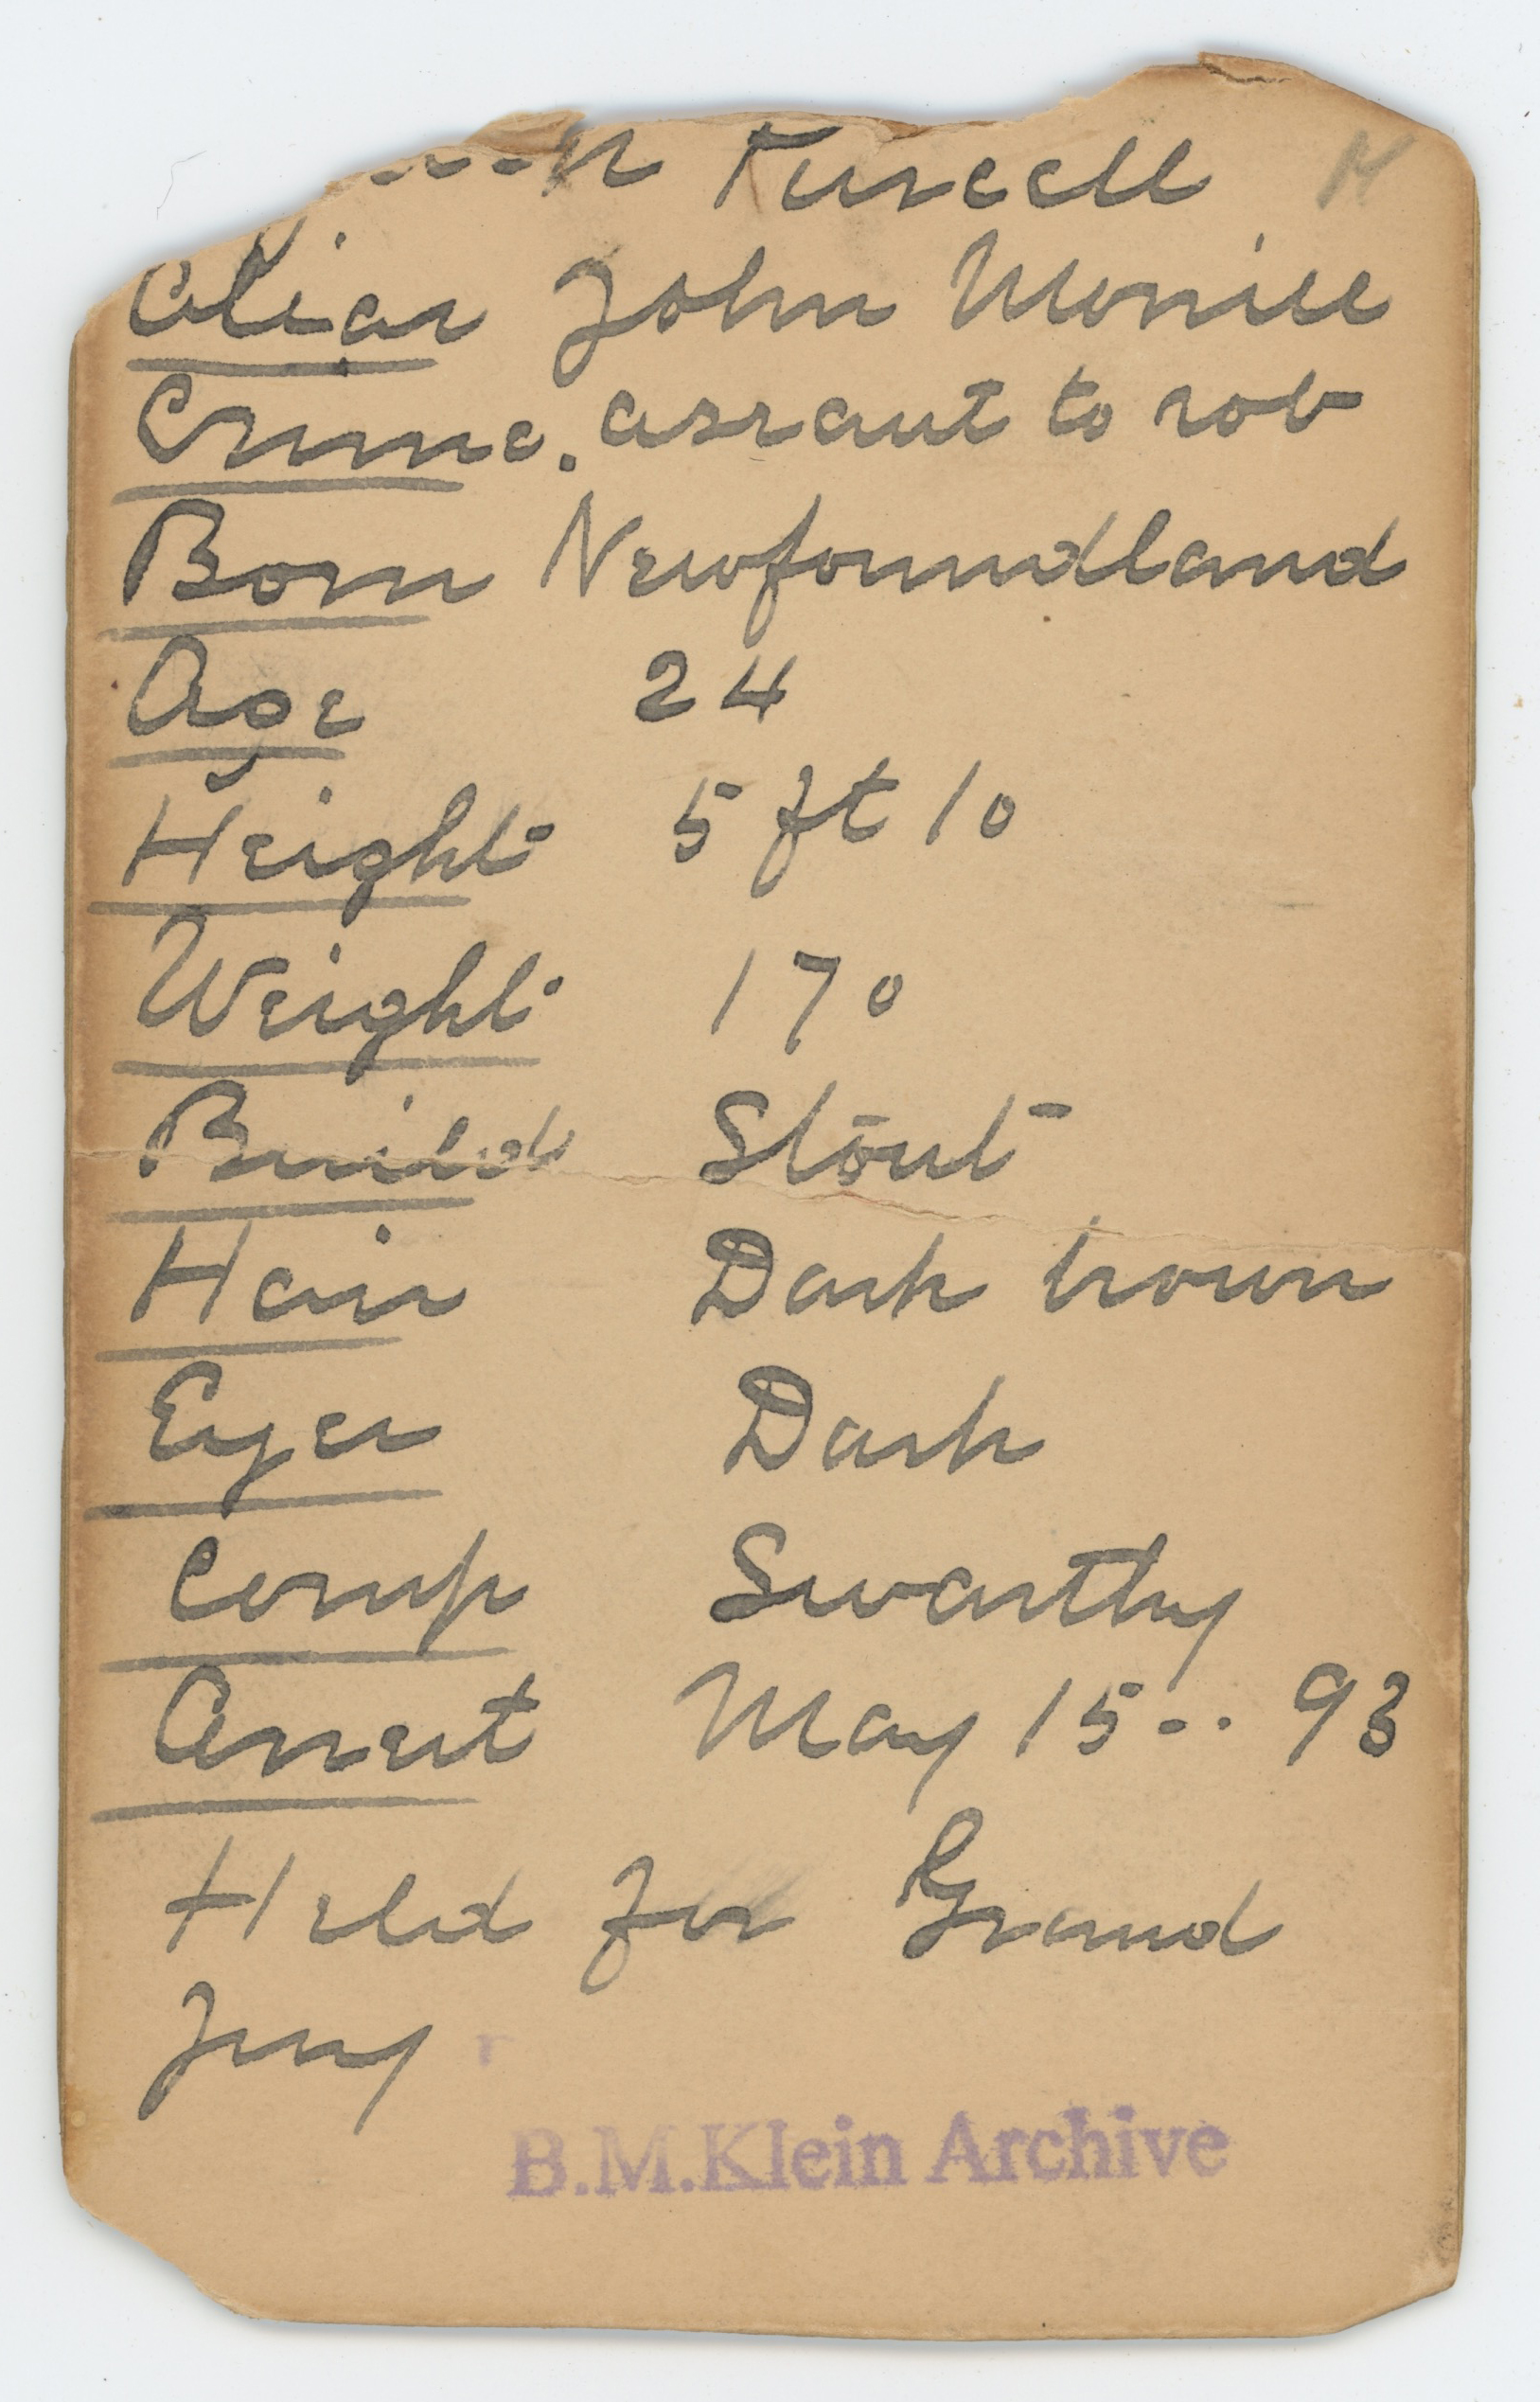 Purcell
Alias John Morrill
Crime. assault to rob
Born Newfoundland
Age 24
Height 5 ft 10
Weight 170
Build Stout
Hair Dark brown
Eyes Dark
Comp Swarthy
Arrest May 15 -- 93
Held for Grand
Jury
B.M.Klein Archive